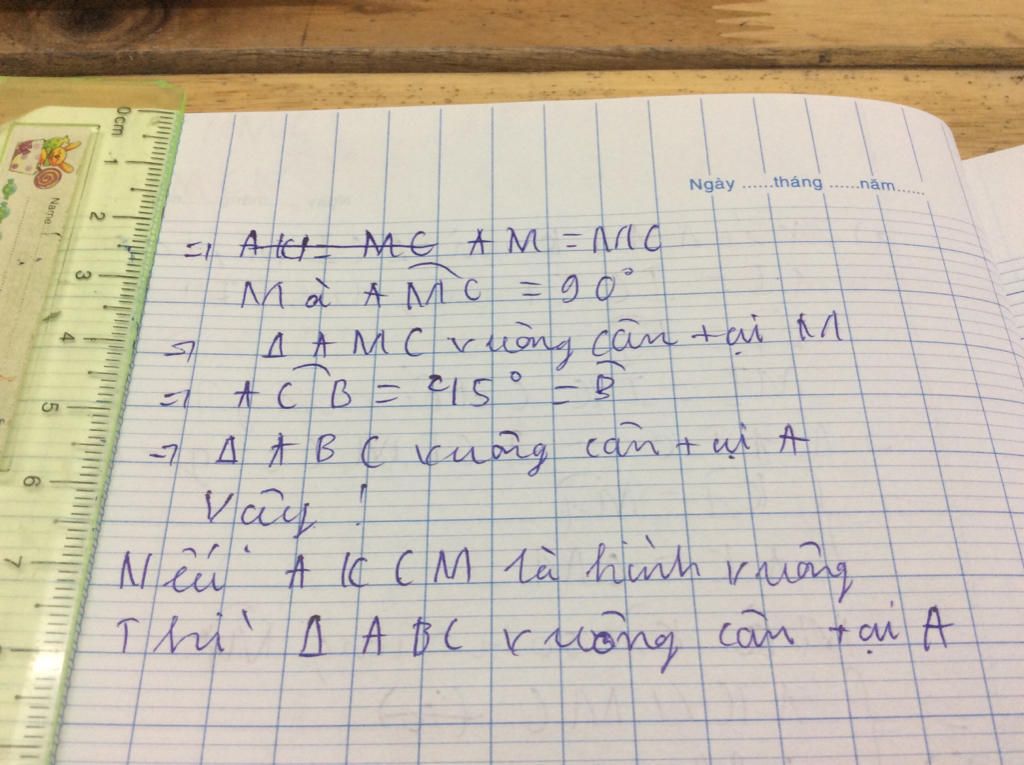 0 cm
1
2
3
4
5
6
7
Name :
Ngày ......tháng ......năm......
=> AK = MC AM = MC
Mà AMC = 90°
=> Δ AMC vuông cân tại M
=> ACB = 45° = B
=> Δ ABC vuông cân tại A
Vậy !
Nếu AKCM là hình vuông
Thì Δ ABC vuông cân tại A